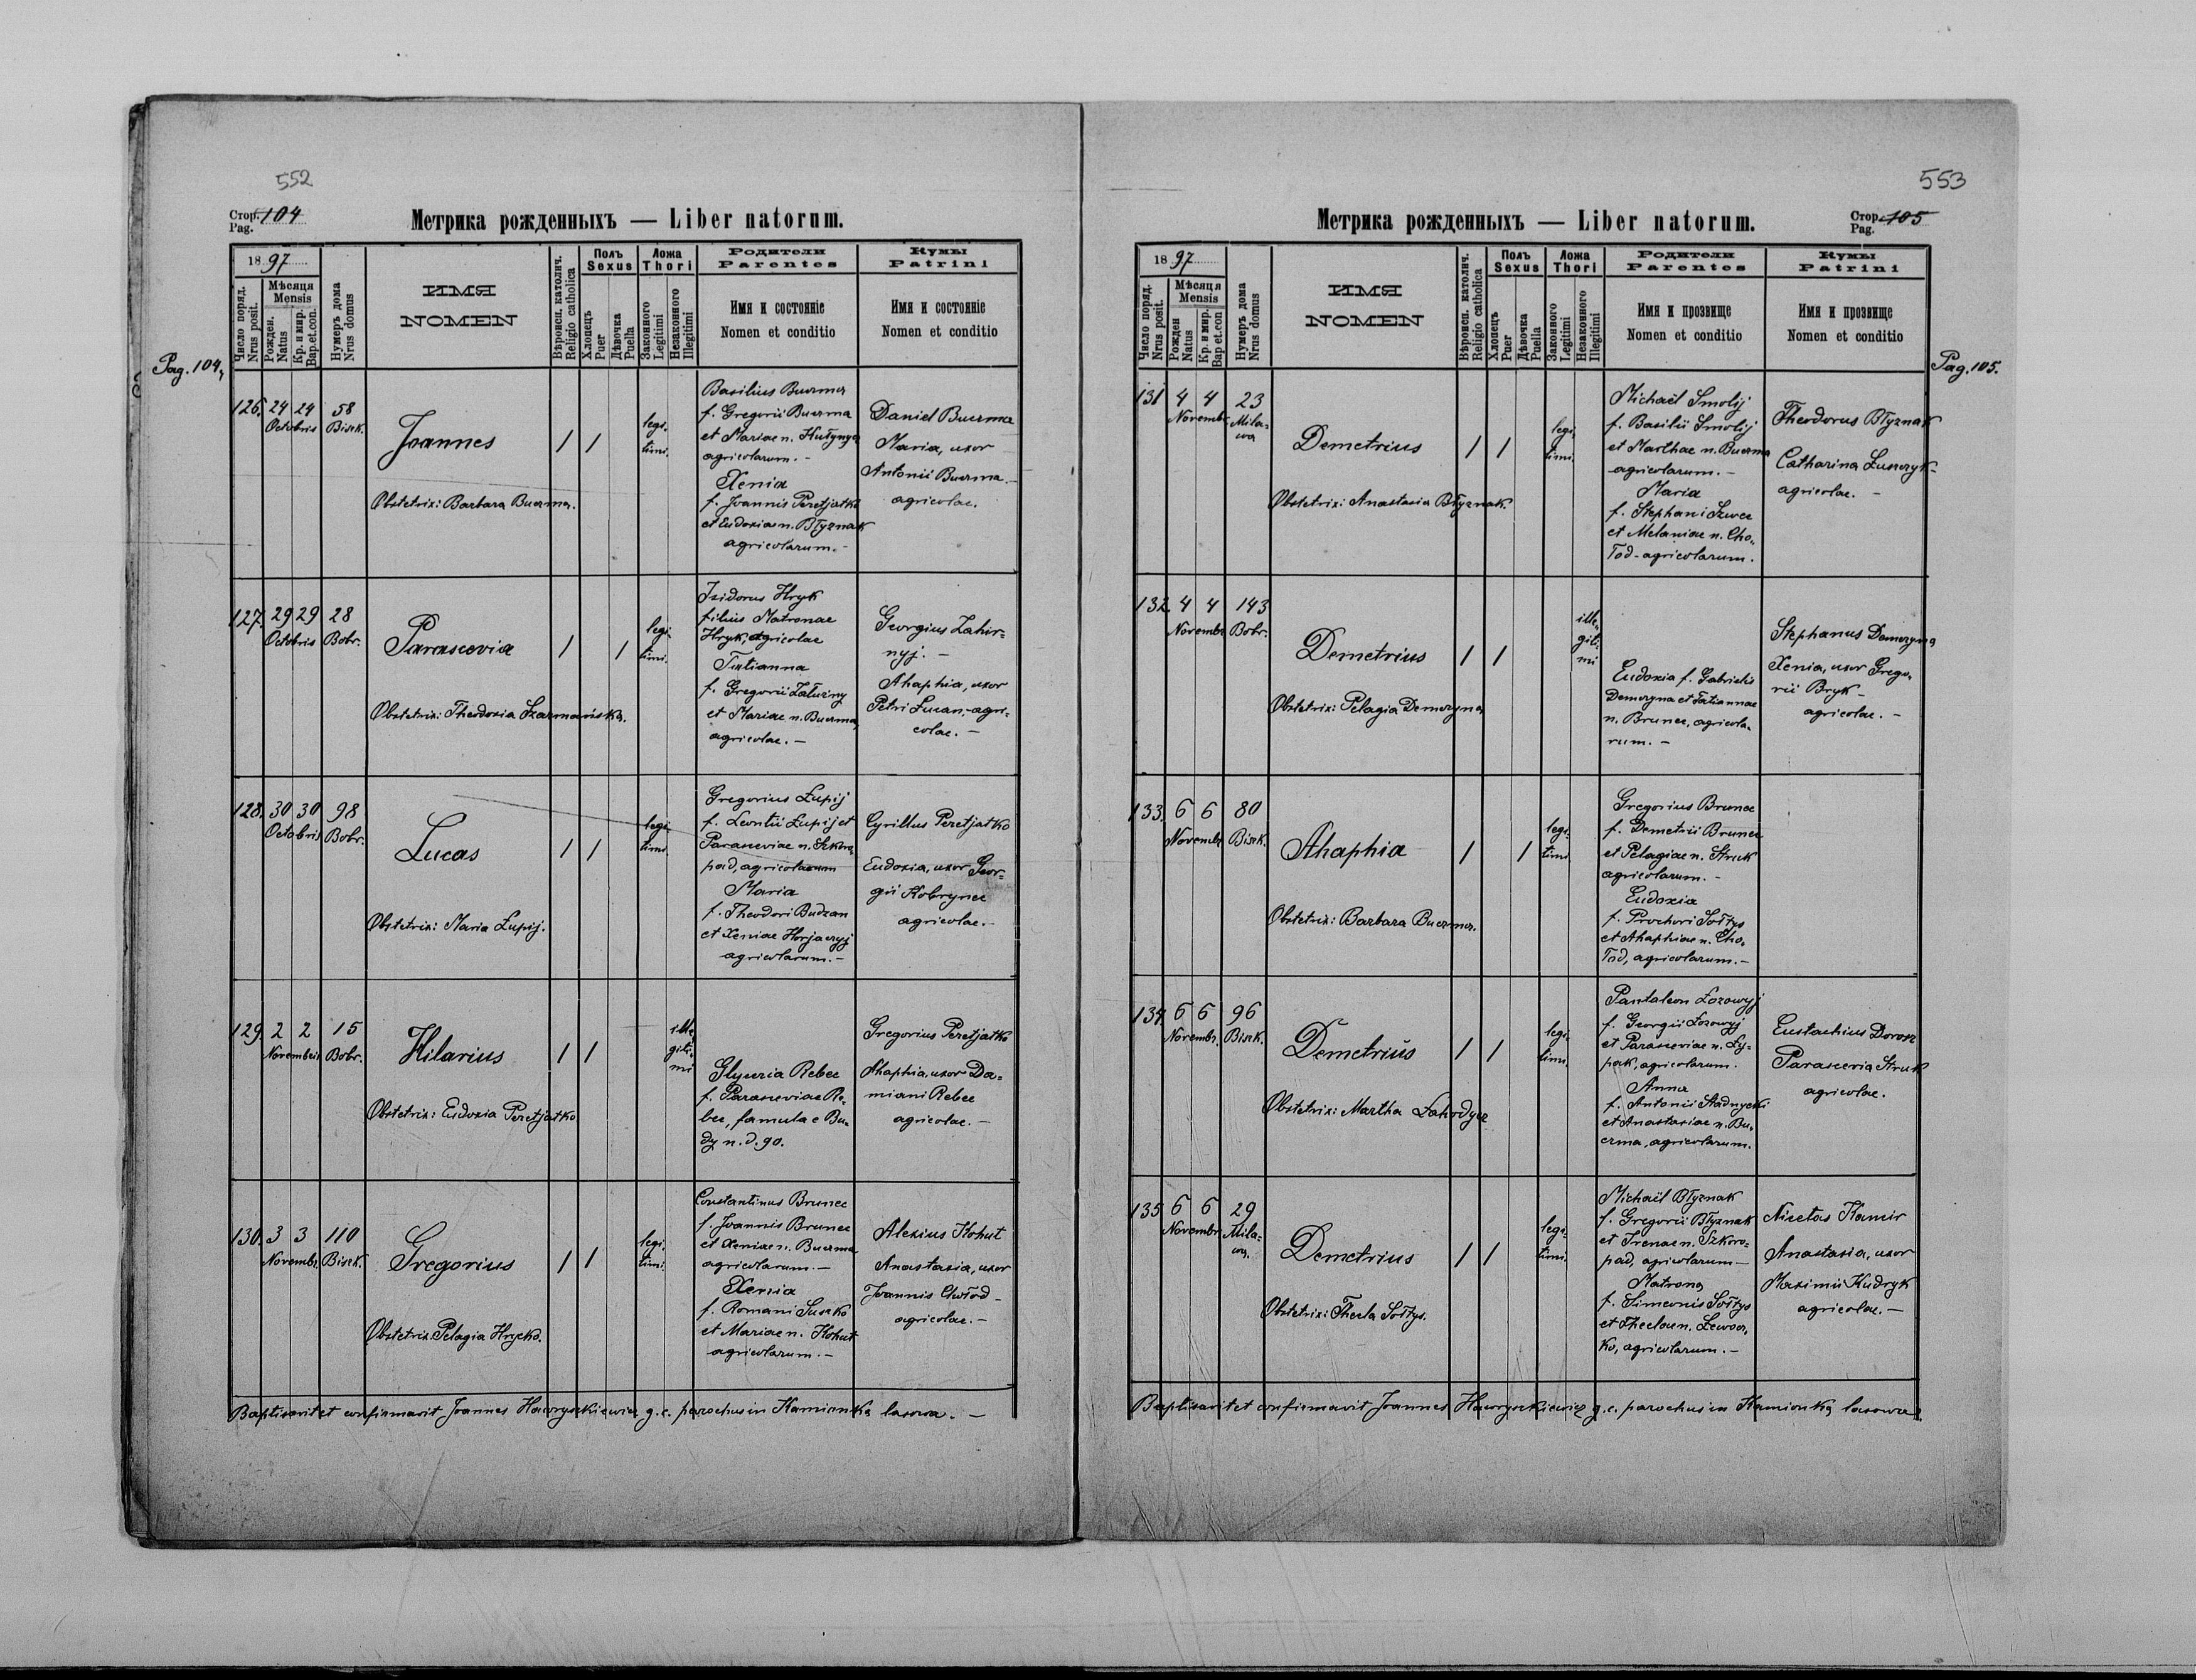 552
Стор. 104
Pag.
Метрика рожденныхъ — Liber natorum.
Pag. 104.
1897
Число поряд.
Nrus posit.
Мѣсяця
Mensis
Рожден.
Natus
Кр. и мир.
Bap.et.con.
Нумеръ дома
Nrus domus
ИМЯ
NOMEN
Вѣроисп. католич.
Religio catholica
Полъ
Sexus
Хлопецъ
Puer
Дѣвочка
Puella
Ложа
Thori
Законного
Legitimi
Незаконного
Illegitimi
Родители
Parentes
Имя и состояніе
Nomen et conditio
Кумы
Patrini
Имя и состояніе
Nomen et conditio
126. 24 24 58
Octobris Bisek.
Joannes
/ /
legi-
timi.
Obstetrix: Barbara Buczma.
Basilius Buczma
f. Gregorii Buczma
et Mariae n. Hułynycz
agricolarum. -
Xenia
f. Joannis Peretjatko
et Eudoxiae n. Błyznak
agricolarum. -
Daniel Buczma
Maria, uxor
Antonii Buczma. -
agricolae.
127. 29 29 28
Octobris Bobr.
Parascevia
/ /
legi-
timi.
Obstetrix: Theodosia Szarmańska.
Isidorus Hryk
filius Matronae
Hryk, agricolae
Tatianna
f. Gregorii Załuzny
et Mariae n. Buczma,
agricolae. -
Georgius Zahir-
nyj. -
Ahaphia, uxor
Petri Łucan, - agri-
colae. -
128. 30 30 98
Octobris Bobr.
Lucas
/ /
legi-
timi.
Obstetrix: Maria Łupij.
Gregorius Łupij
f. Leontii Łupij et
Parasceviae n. Szkoro-
pad, agricolarum
Maria
f. Theodori Budzan
et Xeniae Horjaczyj
agricolarum. -
Cyrillus Peretjatko
Eudoxia, uxor Geor-
gii Kobrynec
agricolae. -
129. 2 2 15
Novembris Bobr.
Hilarius
/ /
ille-
giti-
mi
Obstetrix: Eudoxia Peretjatko
Glyceria Rebec
f. Parasceviae Re-
bec, famula e Bu-
dy n. d. 90.
Gregorius Peretjatko
Ahaphia, uxor Da-
miani Rebec
agricolae. -
130. 3 3 110
Novembr. Bisek.
Gregorius
/ /
legi-
timi.
Obstetrix Pelagia Hrycko.
Constantinus Brunec
f. Joannis Brunec
et Xeniae n. Buczma
agricolarum. -
Xenia
f. Romani Suszko
et Mariae n. Kohut
agricolarum. -
Alexius Kohut
Anastasia, uxor
Joannis Chołod -
agricolae. -
Baptisavit et confirmavit Joannes Hawryszkiewicz g. c. parochus in Kamionka lasowa. -
553
Стор. 105
Pag.
Метрика рожденныхъ — Liber natorum.
Pag. 105.
1897
Число поряд.
Nrus posit.
Мѣсяця
Mensis
Рожден
Natus
Кр. и мир.
Bap et.con
Нумеръ дома
Nrus domus
ИМЯ
NOMEN
Вѣроисп. католич.
Religio catholica
Полъ
Sexus
Хлопецъ
Puer
Дѣвочка
Puella
Ложа
Thori
Законного
Legitimi
Незаконного
Illegitimi
Родители
Parentes
Имя и прозвище
Nomen et conditio
Кумы
Patrini
Имя и прозвище
Nomen et conditio
131 4 4 23
Novembr. Mila-
wa
Demetrius
/ /
legi-
timi.
Obstetrix: Anastasia Błyznak.
Michaël Smolij
f. Basilii Smolij
et Marthae n. Buczma
agricolarum. -
Maria
f. Stephani Szwec
et Melaniae n. Cho-
łod - agricolarum.
Theodorus Błyznak
Catharina
agricolae. -
132. 4 4 143
Novembr. Bobr.
Demetrius
/ /
ille-
giti-
mi
Obstetrix: Pelagia Demczyna
Eudoxia f. Gabrielis
Demczyna et Tatiannae
n. Brunec, agricola-
rum. -
Stephanus Demczyna
Xenia, uxor Grego-
rii Bryk -
agricolae. -
133. 6 6 80
Novembr. Bisek.
Ahaphia
/ /
legi-
timi.
Obstetrix: Barbara Buczma.
Gregorius Brunec
f. Demetrii Brunec
et Pelagiae n. Struk
agricolarum. -
Eudoxia
f. Prochori Sołtys
et Ahaphiae n. Cho-
łod, agricolarum. -
134. 6 6 96
Novembr. Bisek.
Demetrius
/ /
legi-
timi.
Obstetrix: Martha Łahodycz
Pantaleon Łozowyj
f. Georgii Łozowyj
et Parasceviae n. Ły-
pak, agricolarum.
Anna
f. Antonii Stadnycki
et Anastasiae n. Bu-
czma, agricolarum.
Eustachius Dorosz
Parascevia Struk
agricolae.
135 6 6 29
Novembr. Mila-
wa.
Demetrius
/ /
legi-
timi.
Obstetrix: Thecla Sołtys.
Michaël Błyznak
f. Gregorii Błyznak
et Irenae n. Szkoro-
pad, agricolarum -
Matrona
f. Simeonis Sołtys
et Theclae n. Lewocz-
ko, agricolarum. -
Nicetas Kamir
Anastasia, uxor
Maximi Kudryk
agricolae. -
Baptisavit et confirmavit Joannes Hawryszkiewicz g. c. parochus in Kamionka lasowa.